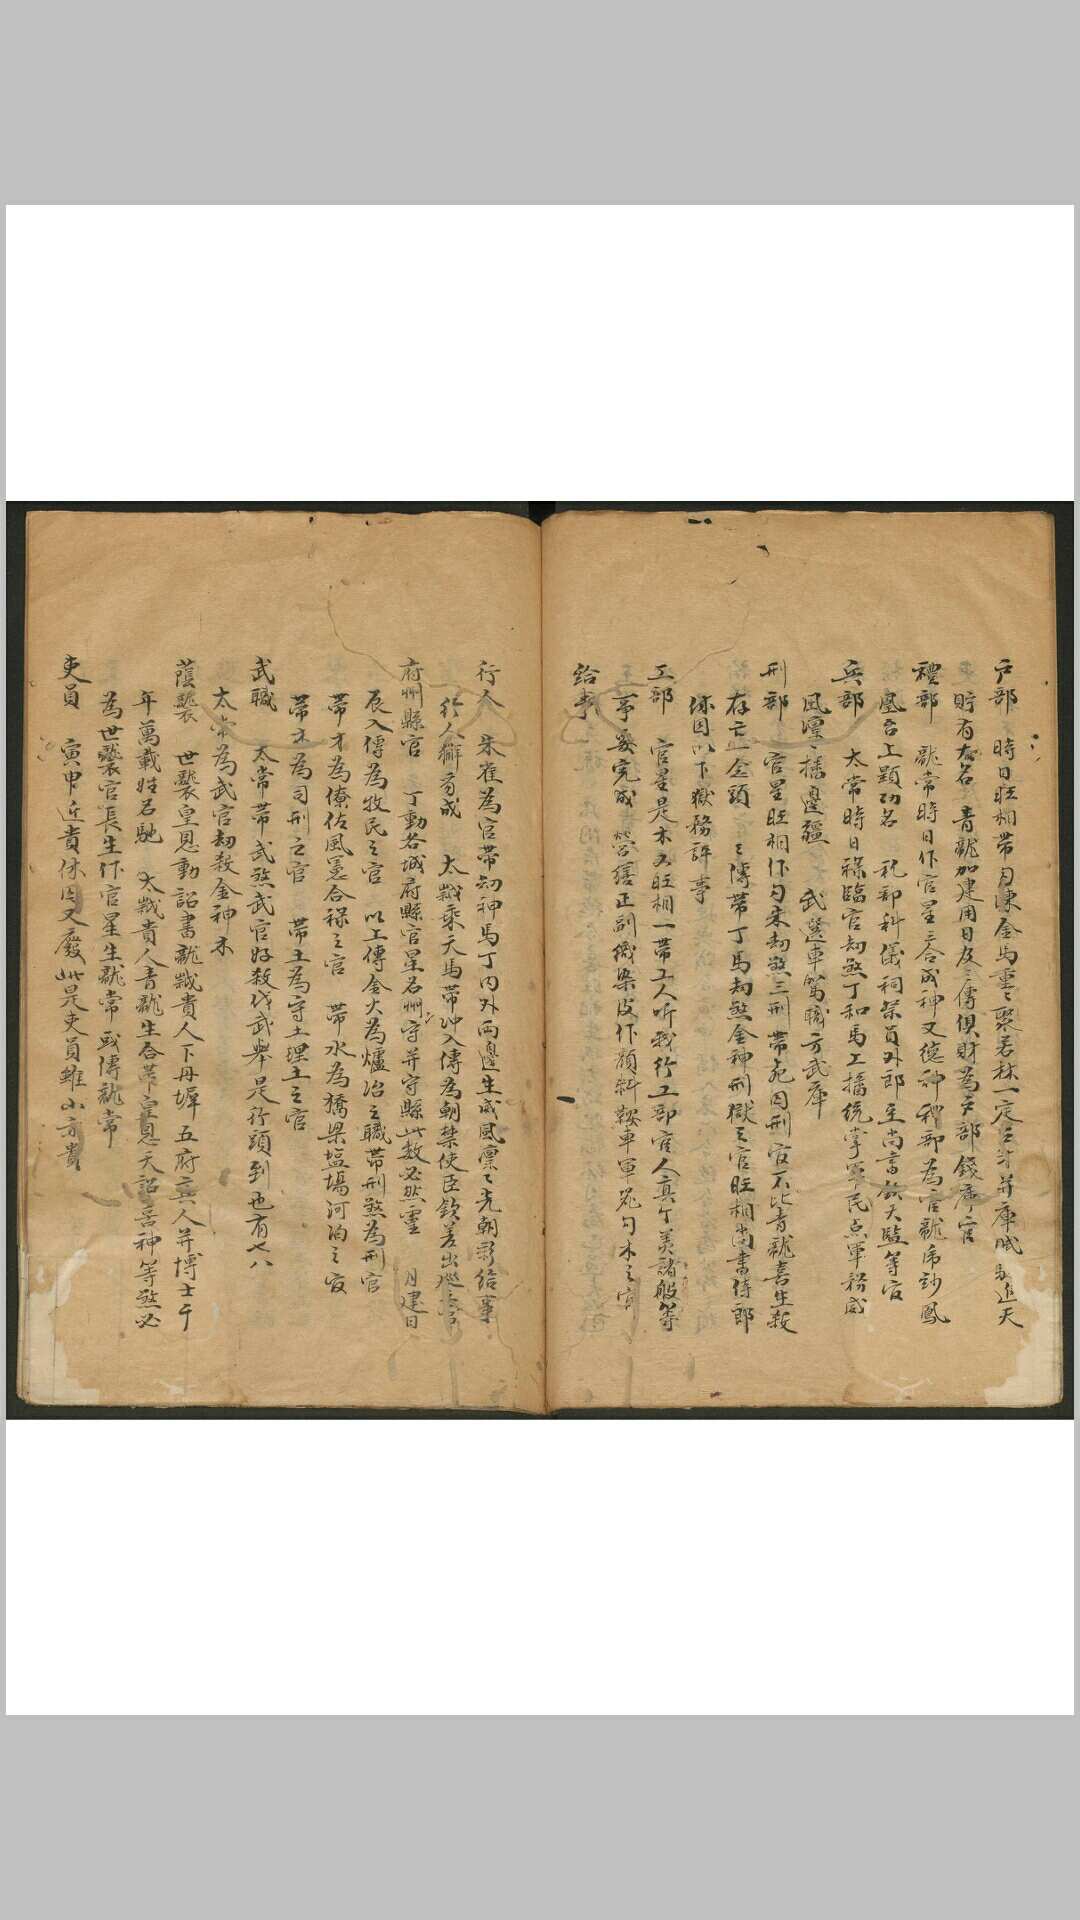 戶部　時日旺相帶勾陳金馬重〻聚若林一定三才并庫賦
貯有大名　青龍加建用日及三傳俱財為戶部錢庫官
禮部　龍常時日作官星三合成神又德神　禮部為官龍常
凰台上顯功名　礼部科儀祠祭員外郎至尚書欽天監等官
兵部　太常時日祿臨官劫煞丁和馬上撞統掌軍民点軍務威
風凜〻播邊疆　武選車駕職方武庫
刑部　官星旺相作勾朱劫煞三刑帶死囚刑官不比青龍喜生殺
存亡　三傳帶丁馬劫煞金神刑獄之官旺相尚書侍郎
休囚以下獄務評事
工部　官星是木又旺相一帶工人听我行工部官人諸般等
事要完成　營繕正副織染皮作顏料鞍車軍器勾木之官
給事
行人　朱雀為官帶劫神馬丁內外兩邊生威風凜〻光朝給事
行人　太歲乘天馬帶冲入傳為朝禁使臣欽差出巡之官
府州縣官　丁動名城府縣官星名州守并守縣此数必然靈　月建日
辰入傳為牧民之官　以上傳金火為爐冶之職帶刑煞為刑官
帶才為僚佐風憲合祿之官　帶水為橋梁塩場河泊之官
帶木為司刑之官　帶土為守土理土之官
武職　太常帶武煞武官好殺伐武舉是行頭到也有七八
太常為武官劫殺金神木
蔭襲　世襲皇恩動詔書龍歲貴人下丹墀五府　人并博士千
年萬載姓名馳　太歲貴人青龍生合帶皇恩天詔吉神等煞必
為世襲官長生作官星生龍常或傳龍常
吏員　寅申近貴休囚又廢此是吏員雖小亦貴